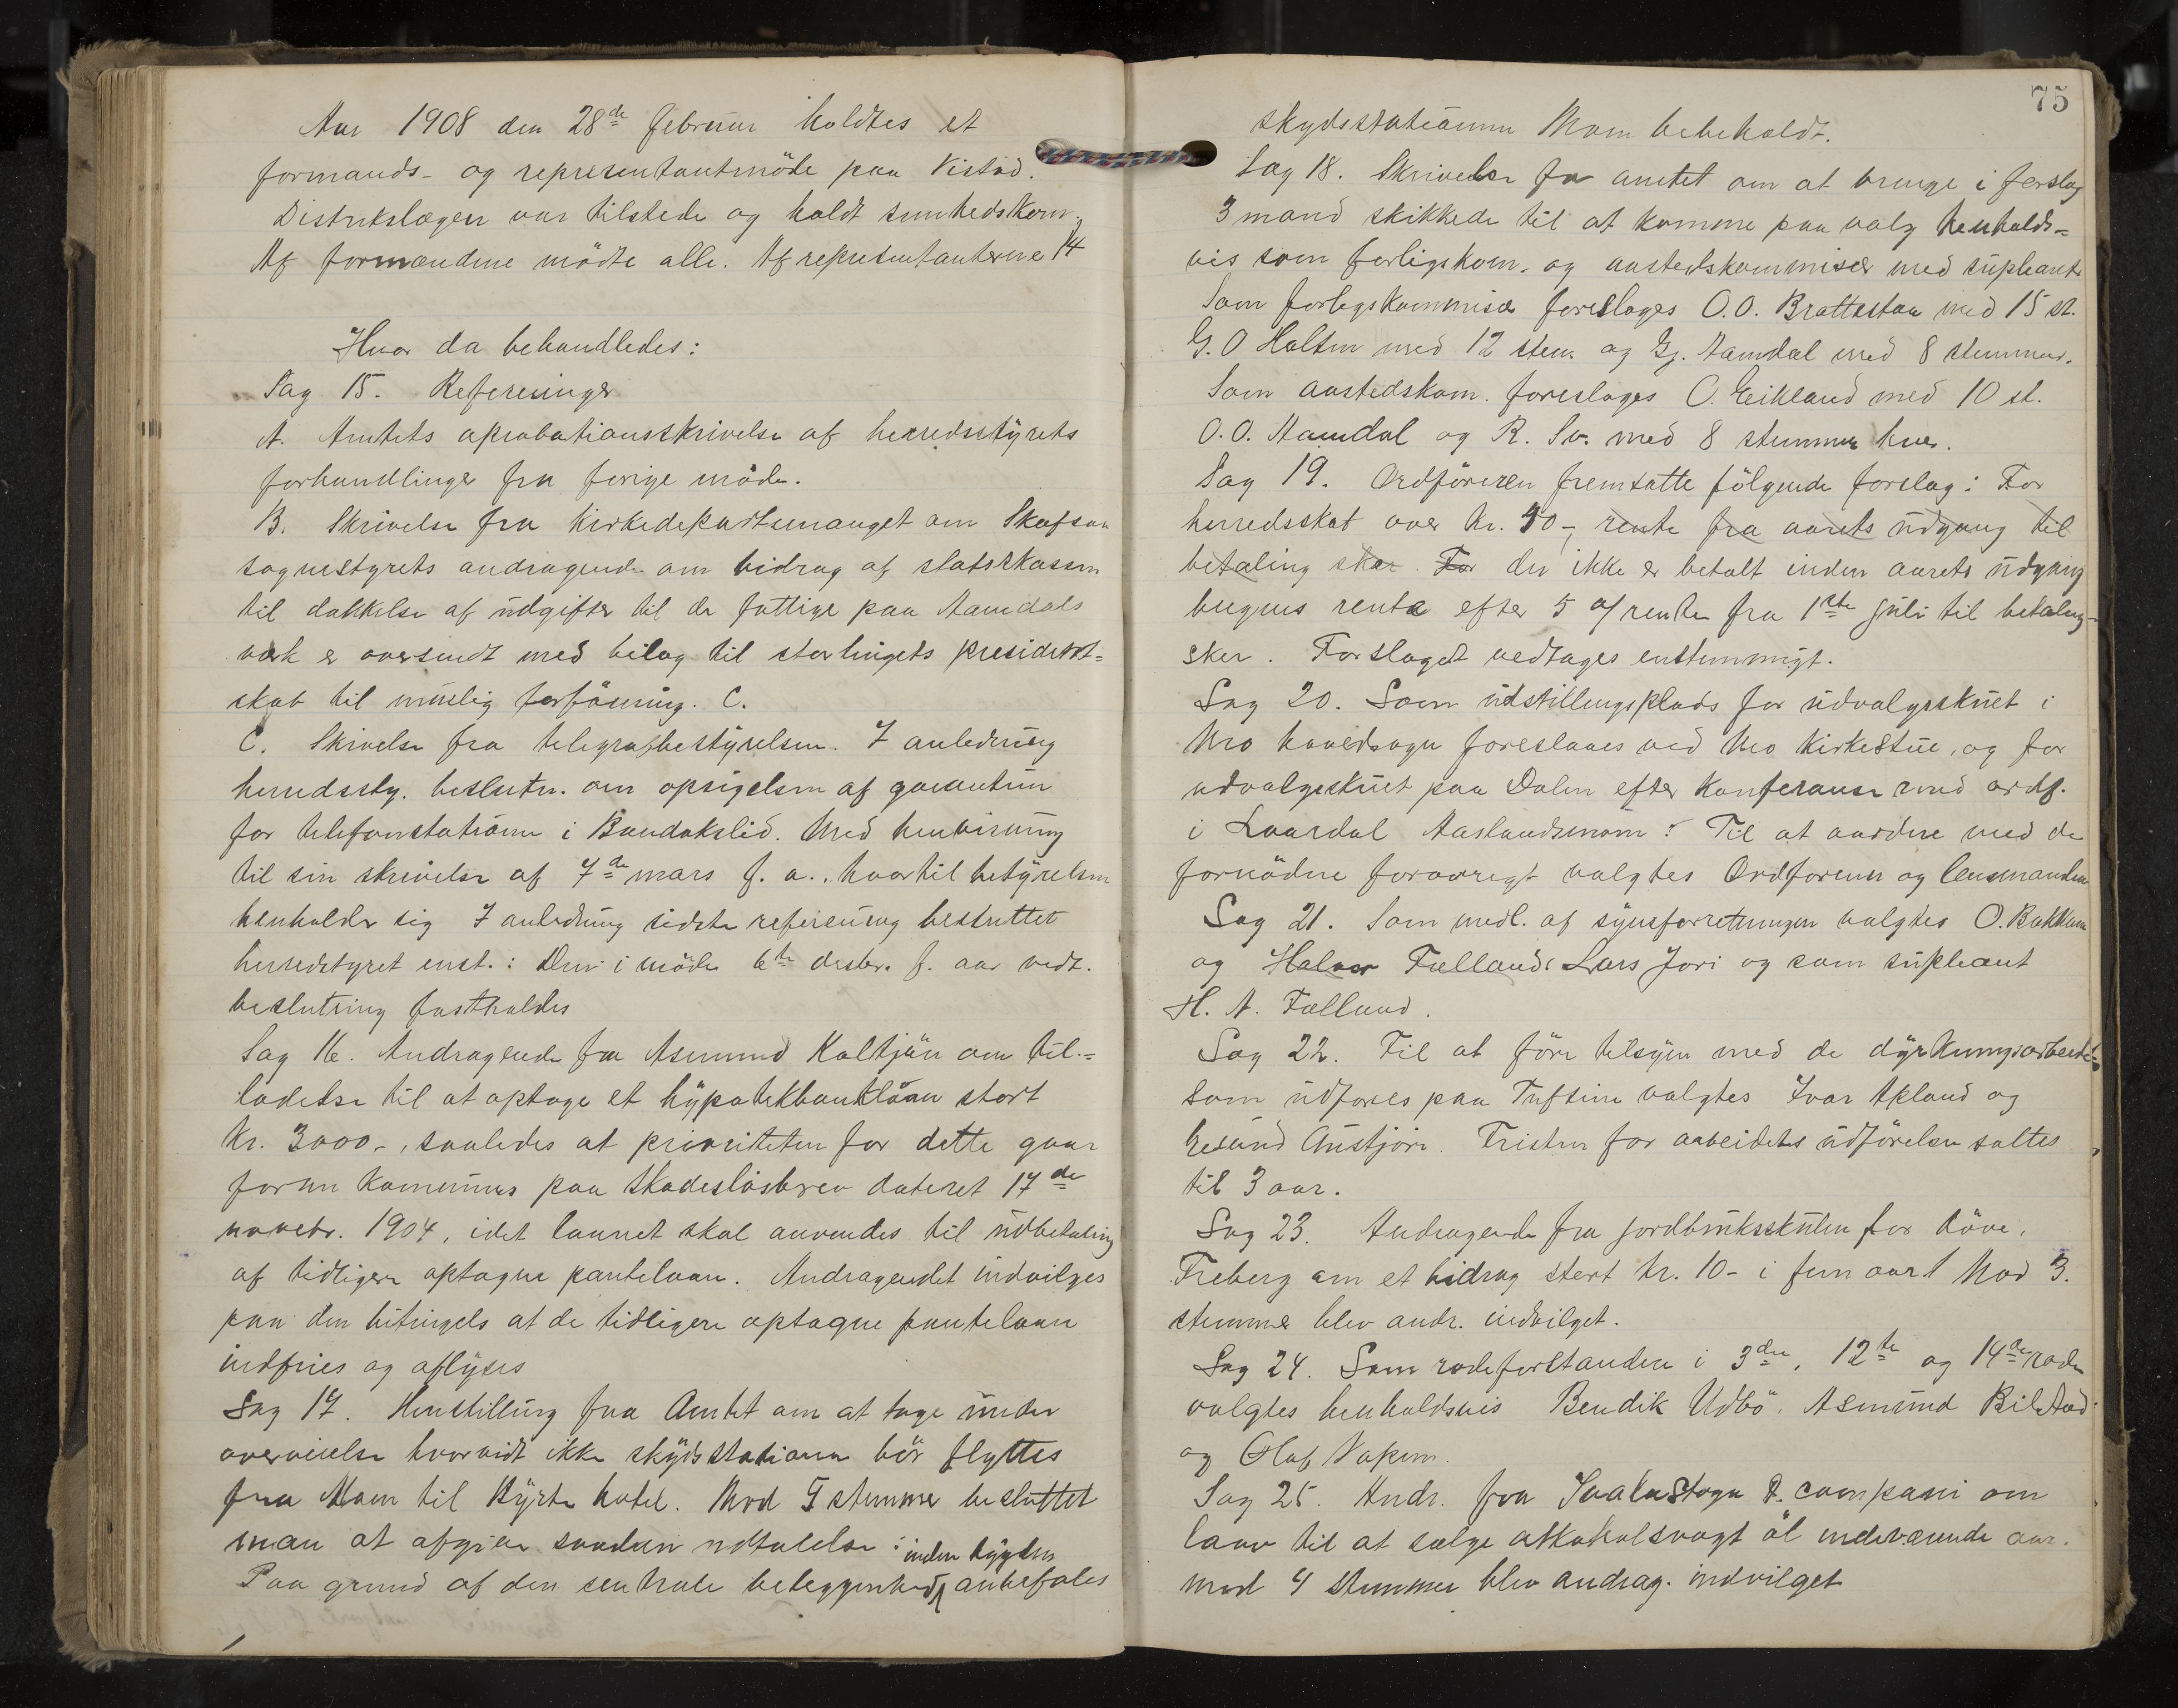 Aar 1908 den 28de februar holdtes et
formands- og representantmöde paa Vistad.
Distrikslægen var tilstede og holdt sunhedskom.
Af formændene mödte alle. Af representanterne 14
Hvor da behandledes:
Sag 15. Refereringer
A. Amtets aprobationsskrivelse af herredsstyrets
forhandlinger fra forige möde.
B. Skrivelse fra Kirkedepartemanget om Skafsaa
sognestyrets andragende om bidrag af statskassen
til dækkelse af udgifter til de fattige paa Aamdals
værk er oversendt med bilag til stortingets president=
skab til mulig forföining. C.
C. Skrivelse fra telegrafbestyrelsen. I anledning
herredssty. beslutn. om opsigelsen af garantien
for telefonstationen i Bandakslid. Med henvisning
til sin skrivelse af 7de mars f. a., hvortil bestyrelsen
henholder sig I anledning sidste referering besluttet
herredstyret enst.: Den i möde 6te desbr. f. aar vedt.
beslutning fastholdes
Sag 16. Andragende fra Asmund Kaltjön om til=
ladelse til at optage et hypotekbanklaan stort
Kr. 3000.-, saaledes at prioriteten for dette gaar
foran Kommunes paa skadeslösbrev dateret 17de
novebr. 1904, idet laanet skal anvendes til udbetaling
af tidligere optagne pantelaan. Andragendet indvilges
paa den bitingels at de tidligere optagne pantelaan
indfries og aflyses
Sag 17. Henstilling fra Amtet om at tage under
overveielse hvorvidt ikke skydsstationen bör flyttes
fra Moen til Kyrte hotel. Mod 5 stemmer besluttet
man at afgive saadan udtalelse:
Paa grund af den sentrale beliggenhed inden bygden anbefales
75
skydsstationen Moen bebeholdt.
Sag 18. Skrivelse fra amtet om at bringe i forslag
3 mand skikkede til at komme paa valg henholds=
vis som forligskom. og aastedskommisær med supleant
Som forligskommisær foreslages O.O. Brattestaa med 15 st.
G. O Holten med 12 stem. og Gj. Aamdal med 8 stemmer.
Som aastedskom. foreslages O. Eikland med 10 st.
O. O. Aamdal og R. Sv. med 8 stemmer hver.
Sag 19. Ordföreren fremsatte fölgende forslag: For
herredsskat over Kr. 40-, rente fra aarets udgang til
betaling sker. For der ikke er betalt inden aarets udgang
beregnes rente efter 5 % rente fra 1ste juli til betaling
sker. Forslaget vedtages enstemmigt.
Sag 20. Som udstillingsplads for udvalgsskuet i
Mo hovedsogn foreslaaes ved Mo Kirkestue, og for
udvalgsskuet paa Dalen efter Konferanse med ordf.
i Laardal Aaslandsmoen. Til at aardne med de
fornödne forövrigt valgtes Ordforeren og lensmanden
Sag 21. Som medl. af synsforretningen valgtes O. Bakkane
og Halvor Fælland, Lars Jori og som supleant
H. A. Fælland.
Sag 22. Til at före tilsyn med de dyrkningsarbeide
som udföres paa Tuftine valgtes Ivar Apland og
Gresund Austjore. Fristen for arbeidets udförelse saltes
til 3 aar.
Sag 23. Andragende fra jordbruksskulen for döve,
Freberg om et bidrag stort kr. 10- i fem aar. Mod 3.
stemmer blev andr. indvilget.
Sag 24. Som rodeforstandere i 3die, 12te og 14de rode
valgtes henholdsvis Bendik Udbö, Asmund Bilstad
og Olaf Napern.
Sag 25. Andr. fra Saalastoga & compani om
laav til at sælge alkoholsvagt öl indeværende aar.
mod 4 stemmer blev andrag. indvilget